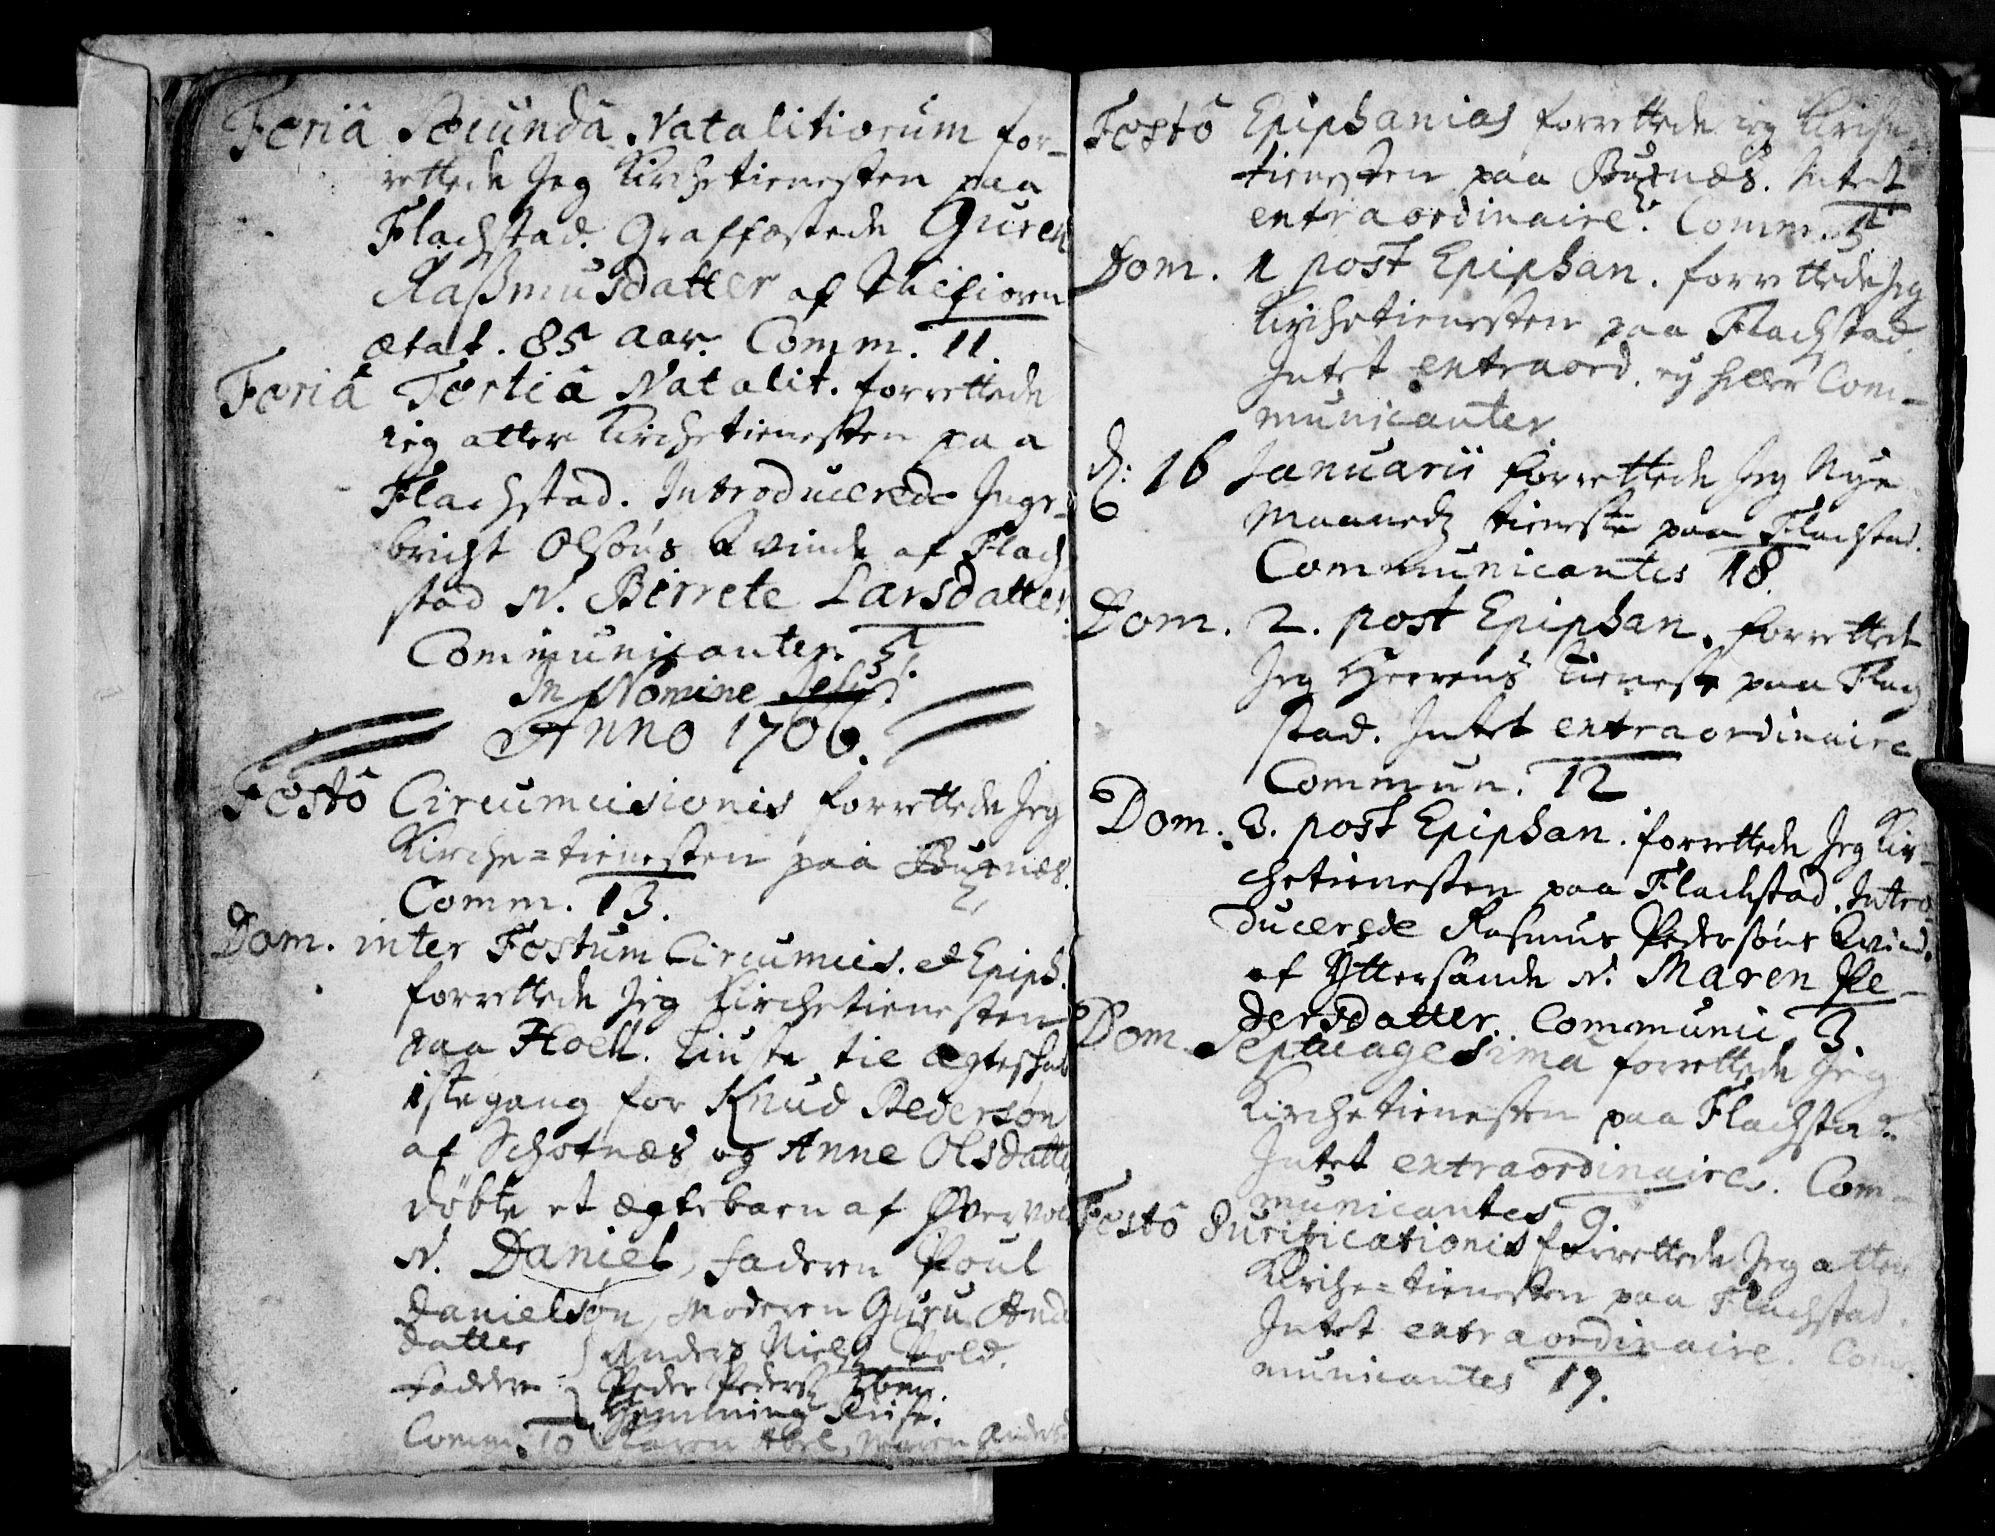 Feriâ Secundâ Natalitiorum for-
rettede Jeg Kirchetienesten paa
Flachstad. Graffæstede Guren
Raßmusdatter af
ætat. 85 aar. Comm. 11.
Feriâ Tertiâ Natalit. forrettede
ieg atter Kirchetienesten paa
Flachstad. Introducerede Inge-
bricht Olsøns Kvinde af Flach
stad N. Birrete Larsdatter.
Communicanter 5.
In Nomine Jesu!
Anno 1706.
Festô Circumcisionis forrettede Jeg
Kirche=tienesten paa Buxnæs.
Comm. 13.
Dom. inter Festum Circumcis. et Epiph.
forrettede Jeg Kirchetienesten
paa Hoell. Liuste til ægteskab
1ste gang for Knud Pedersøn
af Schotnæs og Anne Olsdatter
døbte et ægtebarn af Øvervold
N. Daniel, faderen Poul
Danielsøn, Moderen Guru And
datter Anders Niels Vold.
faddere Peder Peders
Hemming
Comm. 10 Karen Abel, Maren Anders
Festô Epiphanias forrettede ieg Kirche
tienesten paa Buxnæs. Intet
extraordinaire. Comm. 5
Dom. 1 post Epiphan. forrettede Jeg
Kirchetienesten paa Flachstad.
Intet extraord. ej heller Com-
municanter
d: 16 Januarii forrettede Jeg Nye
Maanedz tieneste paa Flachstad.
Communicantes 18.
Dom. 2. post Epiphan. forrettede
Jeg Herrens tieneste paa Flag
stad. Intet extraordinaire
Commun. 12
Dom. 3. post Epiphan. forrettede Jeg Kir-
chetienesten paa Flachstad. Intro
ducerede Rasmus Pedersøns Kvinde
af Yttersande N. Maren Pe-
dersdatter. Communic. 3.
Dom. Septuagesima forrettede Jeg
Kirchetienesten paa Flachstad.
Intet extraordinaires. Com-
municantes 9.
Festô Purificationis forrettede Jeg atter
Kirche=tienesten paa Flachstad.
Intet extraordinaire. Com
municantes 19.